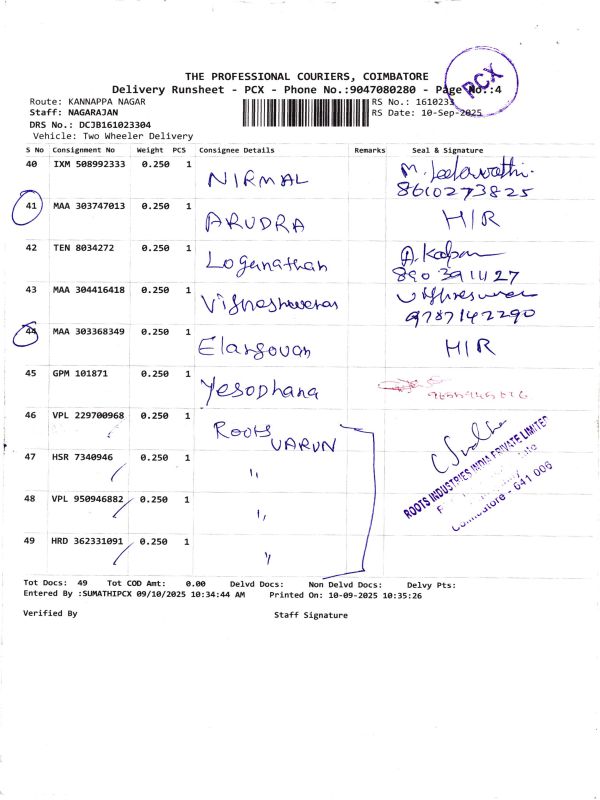 THE PROFESSIONAL COURIERS, COIMBATORE
Delivery Runsheet - PCX - Phone No.:9047080280 - Page No.:4
PCX
Route: KANNAPPA NAGAR RS No.: 1610233
Staff: NAGARAJAN RS Date: 10-Sep-2025
DRS No.: DCJB161023304
Vehicle: Two Wheeler Delivery
S No Consignment No Weight PCS Consignee Details Remarks Seal & Signature
40 IXM 508992333 0.250 1 NIRMAL
8610273825
41 MAA 303747013 0.250 1 ARUDRA H/R
42 TEN 8034272 0.250 1 Loganathan
43 MAA 304416418 0.250 1 Vighneshwaran
9787142290
44 MAA 303368349 0.250 1 Elangovan H/R
45 GPM 101871 0.250 1 Yesodhana
46 VPL 229700968 0.250 1 Roots
VARUN
47 HSR 7340946 0.250 1 "
48 VPL 950946882 0.250 1 "
49 HRD 362331091 0.250 1 "
ROOTS INDUSTRIES INDIA PRIVATE LIMITED
Coimbatore - 641 006
Tot Docs: 49 Tot COD Amt: 0.00 Delvd Docs: Non Delvd Docs: Delvy Pts:
Entered By :SUMATHIPCX 09/10/2025 10:34:44 AM Printed On: 10-09-2025 10:35:26
Verified By Staff Signature